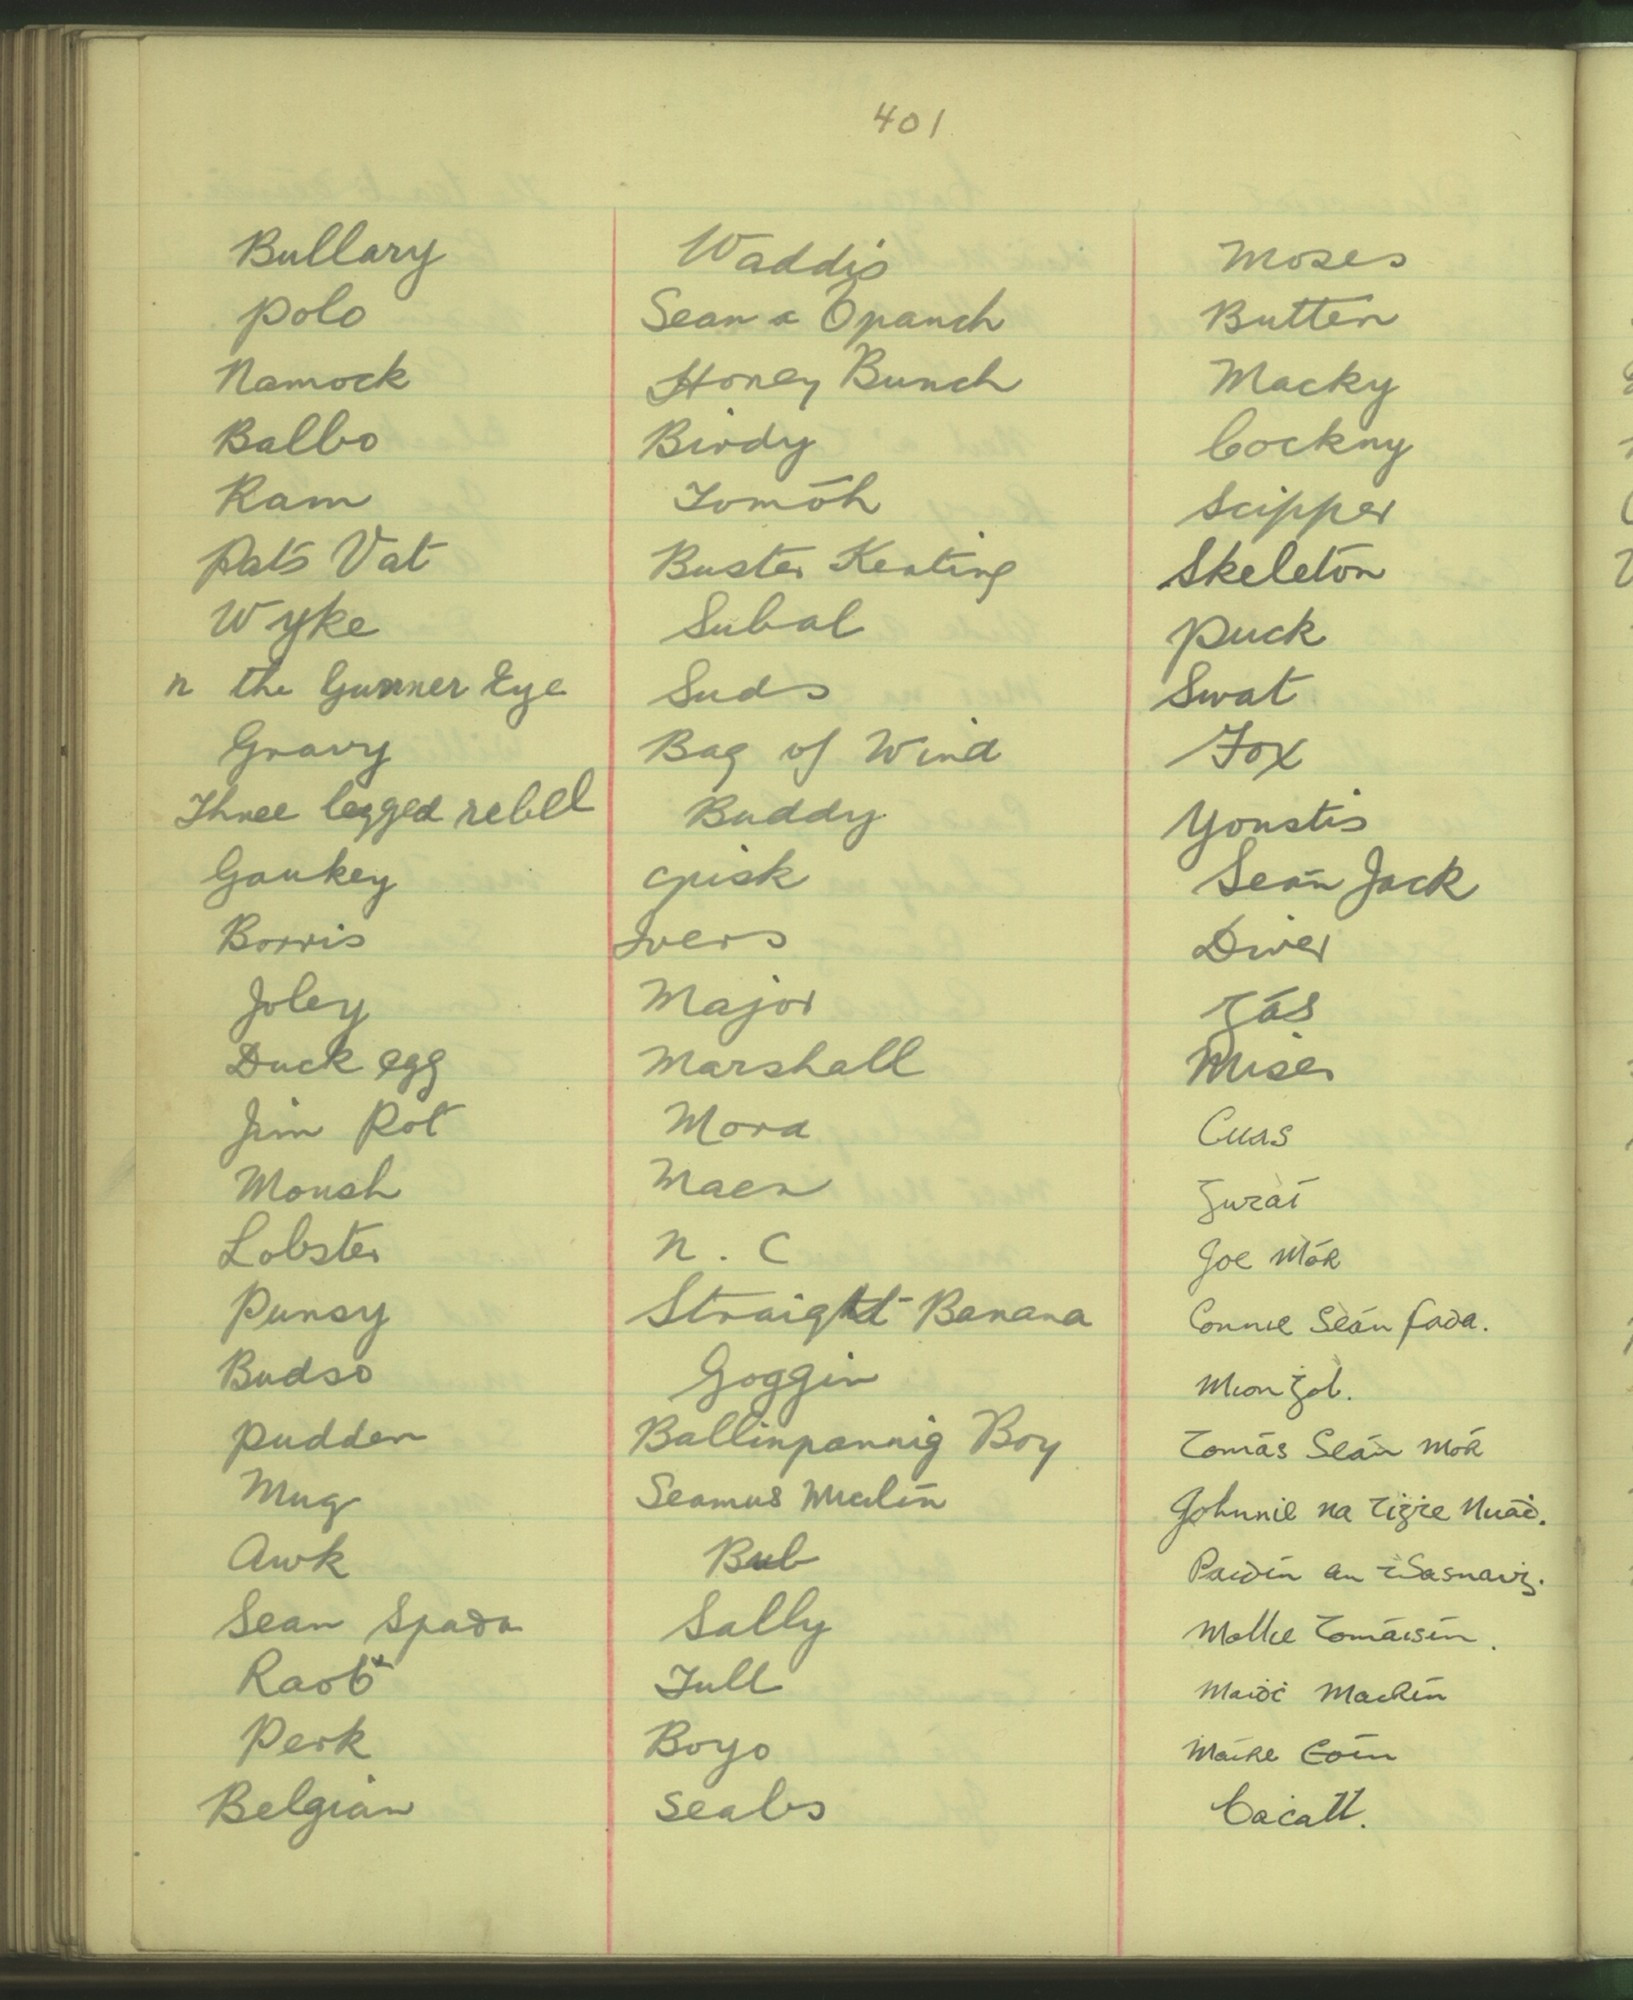 401
Bullary
Polo
Namock
Balbo
Ram
Pats Vat
Wyke
n the Gunner Eye
Gravy
Three legged rebel
Gaukey
Borris
Joley
Duck egg
Jim Rot
Moush
Lobster
Punsy
Budso
Pudden
Mug
Awk
Sean Spada
Raob
Perk
Belgian
Waddis
Sean a Opanch
Honey Bunch
Birdy
Tomóh
Buster Keating
Subal
Suds
Bag of Wind
Buddy
Crisk
Ivers
Major
Marshall
Mora
Maen
N. C
Straight Banana
Goggin
Ballinpannig Boy
Seamus Micilín
Bub
Sally
Tull
Boyo
Seabs
Moses
Butter
Macky
Cockny
Scipper
Skeleton
Puck
Swat
Fox
Youstis
Seán Jack
Diver
Tás
Miser
Cuas
Joe Mór
Connie Seán fada.
Tomás Seán Mór
Johnnie na Tiġte Nuaḋ.
Paidín an tSasnaiġ.
Mollie Tomáisín.
Máire Eoin